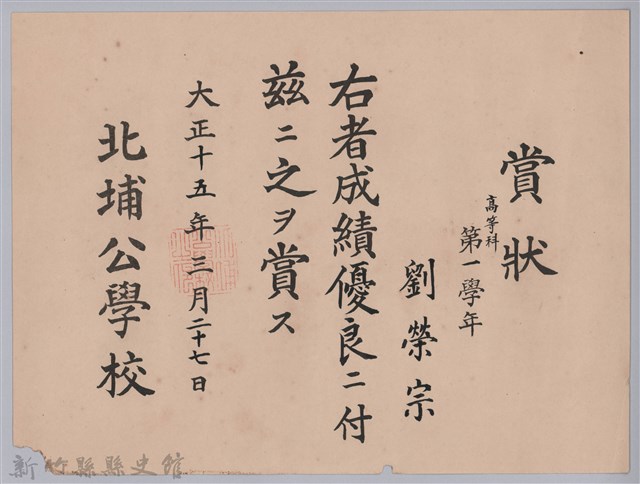 賞狀
高等科
第一學年
劉榮宗
右者成績優良ニ付
茲ニ之ヲ賞ス
大正十五年三月二十七日
北埔公學校
新竹縣縣史館